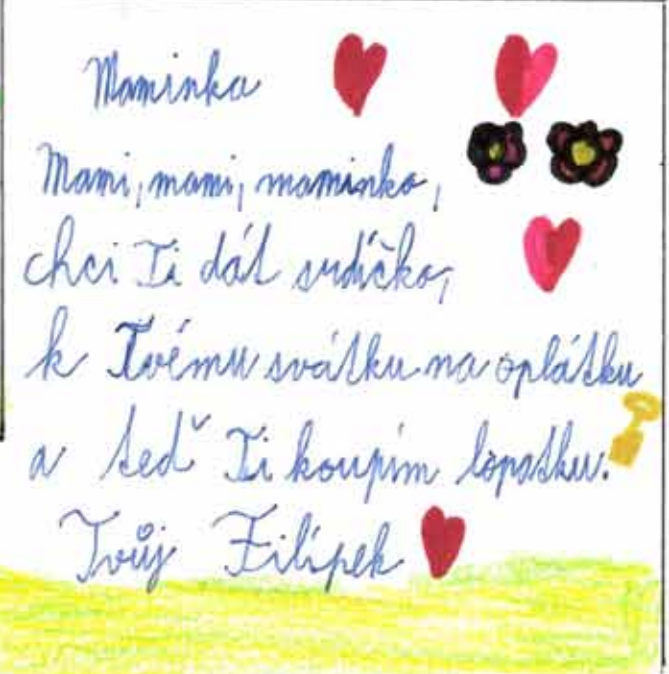 Maminka
Mami, mami, maminko,
chci Ti dát srdíčko,
k Tvému svátku na oplátku
a teď Ti koupím lopatku.
Tvůj Filípek